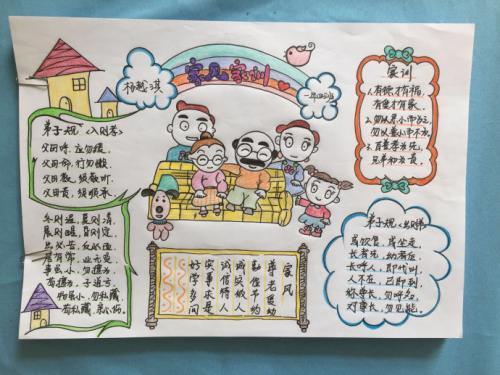 家风家训
杨越淇
一年四班
弟子规《入则孝》
父母呼，应勿缓，
父母命，行勿懒，
父母教，须敬听，
父母责，须顺承，
冬则温，夏则凊，
晨则省，昏则定，
出必告，反必面，
居有常，业无变，
事虽小，勿擅为，
苟擅为，子道亏，
物虽小，勿私藏，
苟私藏，亲心伤，
家训
1、有德才有福，
2、勿以恶小而为之，
勿以善小而不为，
3、百善孝为先，
家风
尊老爱幼
勤俭节约
诚实做人
诚信待人
实事求是
好学多问
弟子规《出则弟》
或饮食，或坐走，
长者先，幼者后，
长呼人，即代叫，
人不在，己即到，
称尊长，勿呼名，
对尊长，勿见能，